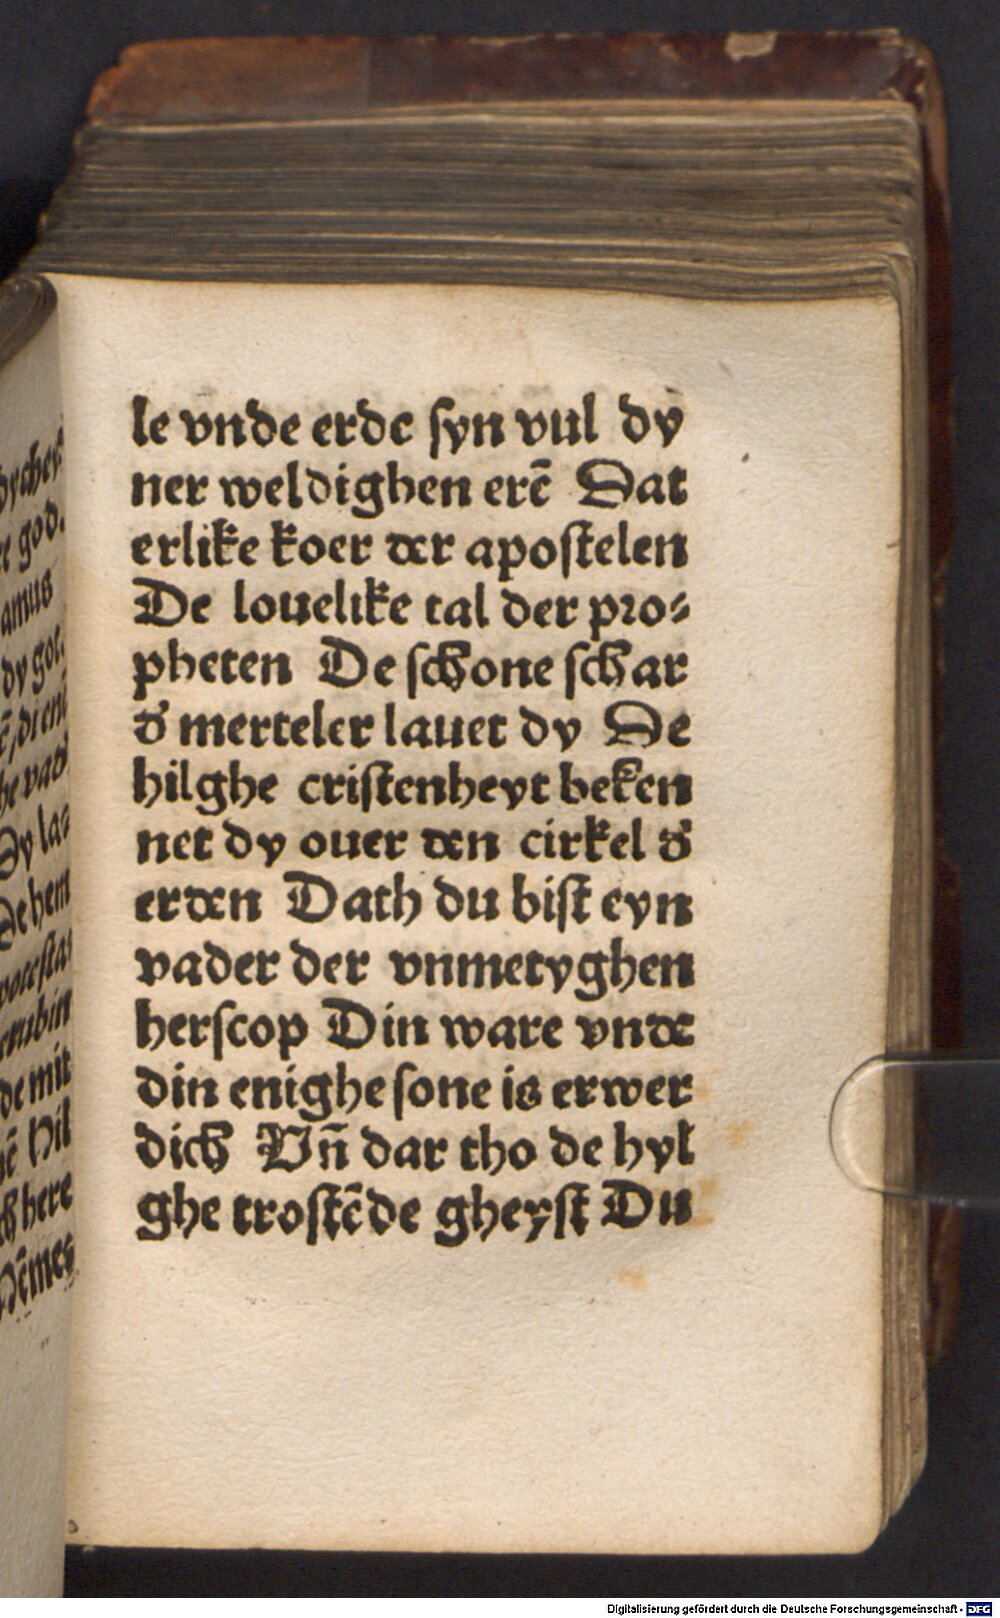 le vnde erde syn vul dy
ner weldighen erē Dat
erlike koer der apostelen
De louelike tal der pro⸗
pheten De schone schar
d' merteler lauet dy De
hilghe cristenheyt beken
net dy ouer den cirkel d'
erden Dath du bist eyn
vader der vnmetyghen
herscop Din ware vnde
din enighe sone is erwer
dich Vn̄ dar tho de hyl
ghe trostēde gheyst Du
Digitalisierung gefördert durch die Deutsche Forschungsgemeinschaft - DFG